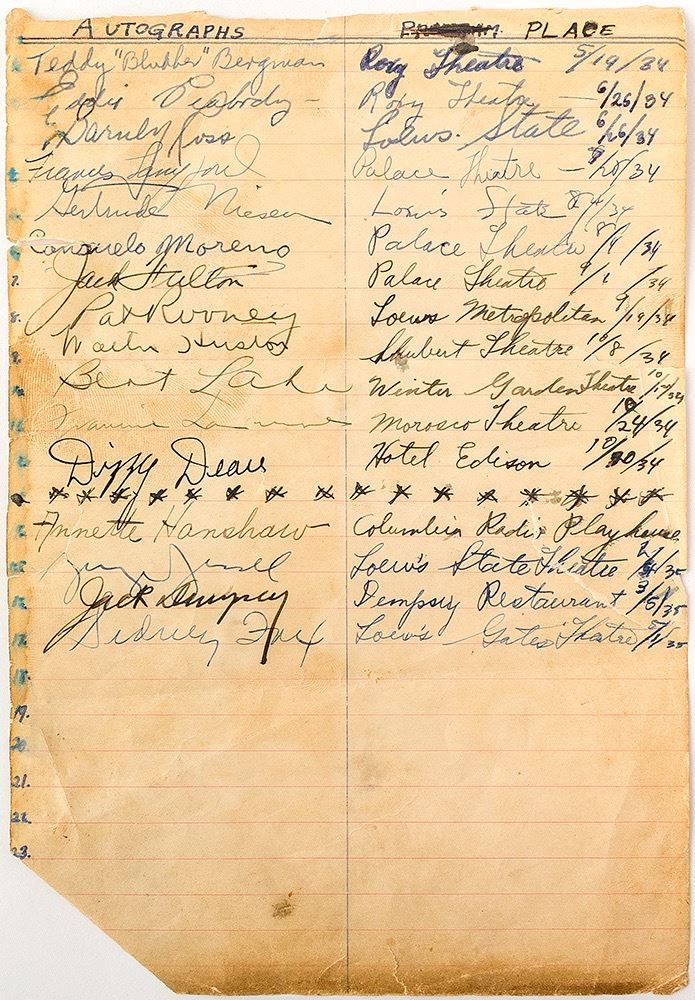 AUTOGRAPHS PLACE
Teddy "Blubber" Bergman Roxy Theatre 5/19/34
Eddie Peabody - Roxy Theatre - 6/25/34
Barney Ross Loews. State 6/26/34
Frances Langford Palace Theatre - /20/34
Gertrude Niesen Loew's State 8/ /34
Consuelo Moreno Palace Theatre 8/ /34
7. Jack Fulton Palace Theatre 9/1/34
8. Pat Rooney Loews Metropolitan 9/19/34
9. Walter Huston Shubert Theatre 10/8/34
Bert Lahr Winter Garden Theatre 10/ /34
Morosco Theatre 10/24/34
Dizzy Dean Hotel Edison 10/30/34
x x x x x x x x x x x x x x x x x x
Annette Hanshaw Columbia Radio Playhouse
George Jessel Loew's State Theatre 2/ /35
Jack Dempsey Dempsey Restaurant 3/5/35
Sidney Fox Loew's Gates Theatre 5/1/35
18.
19.
20.
21.
22.
23.